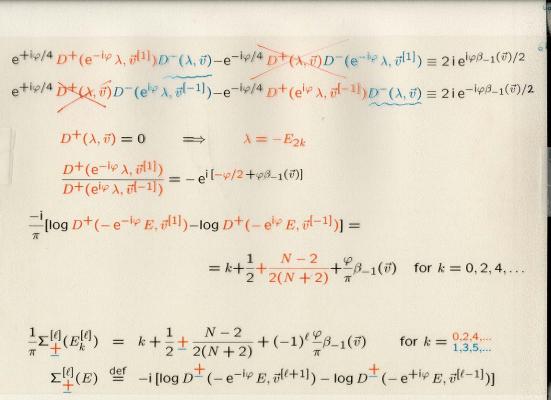 e^{+iφ/4} D⁺(e^{−iφ} λ, v⃗^{[1]})D⁻(λ, v⃗)−e^{−iφ/4} D⁺(λ, v⃗)D⁻(e^{−iφ} λ, v⃗^{[1]}) ≡ 2 i e^{iφβ₋₁(v⃗)/2}
e^{+iφ/4} D⁺(λ, v⃗)D⁻(e^{iφ} λ, v⃗^{[−1]})−e^{−iφ/4} D⁺(e^{iφ} λ, v⃗^{[−1]})D⁻(λ, v⃗) ≡ 2 i e^{−iφβ₋₁(v⃗)/2}
D⁺(λ, v⃗) = 0 ⟹ λ = −E_{2k}
D⁺(e^{−iφ} λ, v⃗^{[1]})
D⁺(e^{iφ} λ, v⃗^{[−1]}) = − e^{i [−φ/2 +φβ₋₁(v⃗)]}
−i/π [log D⁺(− e^{−iφ} E, v⃗^{[1]})−log D⁺(− e^{iφ} E, v⃗^{[−1]})] =
= k+ 1/2 + N − 2/2(N + 2) + φ/π β₋₁(v⃗) for k = 0, 2, 4, . . .
1/π Σ^{[ℓ]}_±(E_k^{[ℓ]}) = k + 1/2 ± N − 2/2(N + 2) + (−1)^ℓ φ/π β₋₁(v⃗) for k = 0,2,4,... 1,3,5,...
Σ^{[ℓ]}_±(E) def= −i [log D^±(− e^{−iφ} E, v⃗^{[ℓ+1]}) − log D^±(− e^{+iφ} E, v⃗^{[ℓ−1]})]